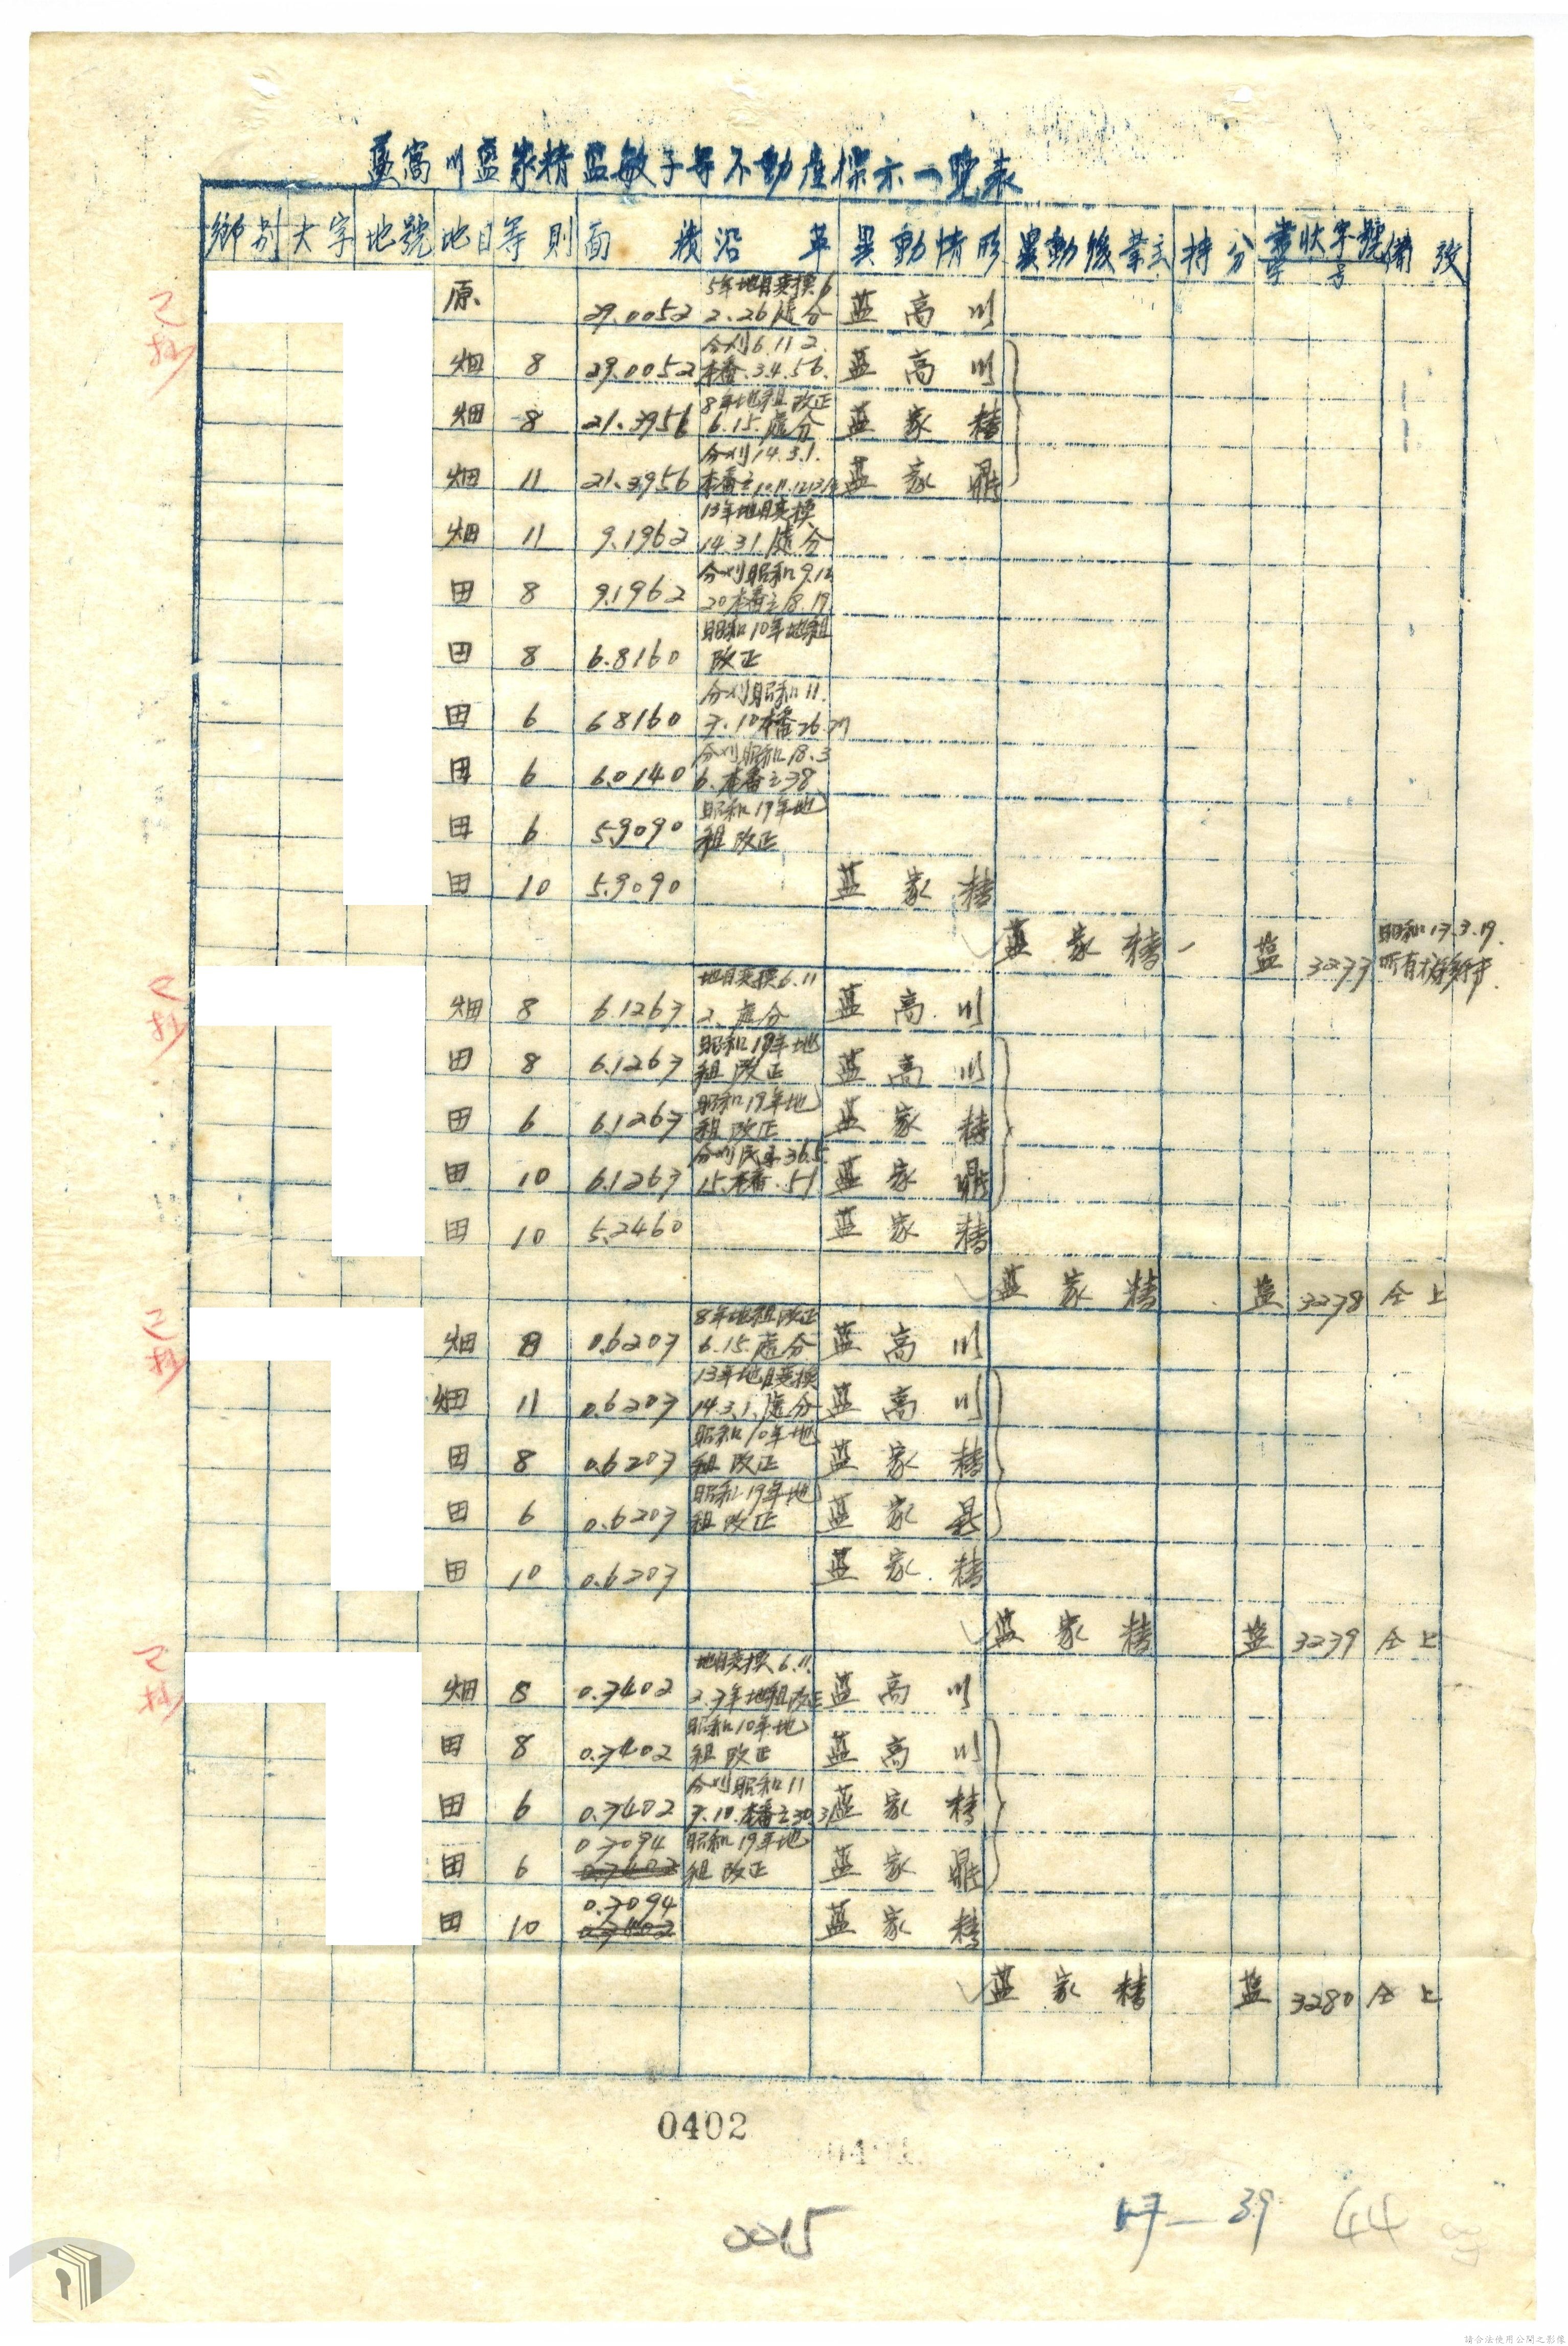 藍高川藍家精藍敏子等不動產標示一覽表
鄉別 大字 地號 地目 等則 面積 沿革 異動情形 異動後業主 持分 書狀字號 備攷
字 号
原 29.0052 5年地目変換6 2.26處分 藍高川
畑 8 29.0052 分刈6.11.2. 本番.3.4.5.6. 藍高川
畑 8 21.3956 8年地租改正 6.15.處分 藍家精
畑 11 21.3956 分刈14.3.1. 藍家鼎
畑 11 9.1962 13年地目変換 14.3.1.處分
田 8 9.1962 分刈昭和9.12 20本番之18.19
田 8 6.8160 昭和10年地租改正
田 6 6.8160 分刈昭和11. 7.10本番26.27
田 6 6.0140 分刈昭和18.3 6.本番之38
田 6 5.9090 昭和19年地租改正
田 10 5.9090 藍家精
藍家精 一 藍 3277 昭和17.3.19.
畑 8 6.1267 地目変換6.11 2.處分 藍高川
田 8 6.1267 昭和19年地租改正 藍高川
田 6 6.1267 昭和19年地租改正 藍家精
田 10 6.1267 分刈民国36.5. 15.本番.51 藍家鼎
田 10 5.2460 藍家精
藍家精 藍 3278 仝上
畑 8 0.6207 8年地租改正 6.15.處分 藍高川
畑 11 0.6207 13年地目変換 14.3.1.處分 藍高川
田 8 0.6207 昭和10年地租改正 藍家精
田 6 0.6207 昭和19年地租改正 藍家
田 10 0.6207 藍家精
藍家精 藍 3279 仝上
畑 8 0.7402 地目変換6.11. 2.7年地租改正 藍高川
田 8 0.7402 昭和10年地租改正 藍高川
田 6 0.7402 分刈昭和11 7.10.本番之30.31 藍家精
田 6 0.7094 0.7402 昭和19年地租改正 藍家鼎
田 10 0.7094 0.7402 藍家精
藍家精 藍 3280 仝上
0402
0015
17—39 44
請合法使用公開之影像